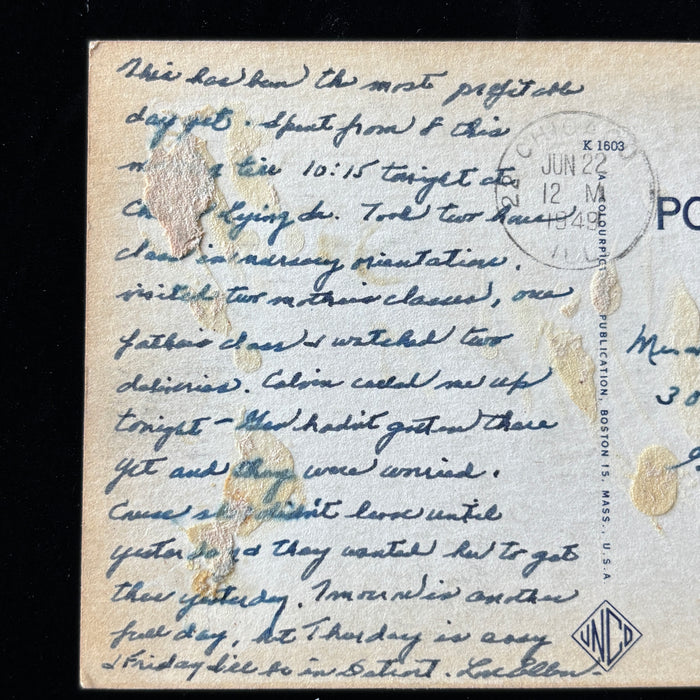 This has been the most profitable
day yet. Spent from 8 this
till 10:15 tonight at
Lying In. Took two hour
class in nursery orientation,
visited two mothers classes, one
fathers class & watched two
deliveries. Calvin called me up
tonight - hadn't gotten there
yet and they were worried.
didn't leave until
yesterday and they wanted her to get
there yesterday. Tomorrow is another
full day, but Thursday is easy
& Friday I'll be in Detroit. Love Ellen.
CHICAGO
22
JUN 22
12 M
1949
ILL.
K 1603
A COLOURPIC PUBLICATION, BOSTON 15, MASS., U.S.A
PO
30
UNCO